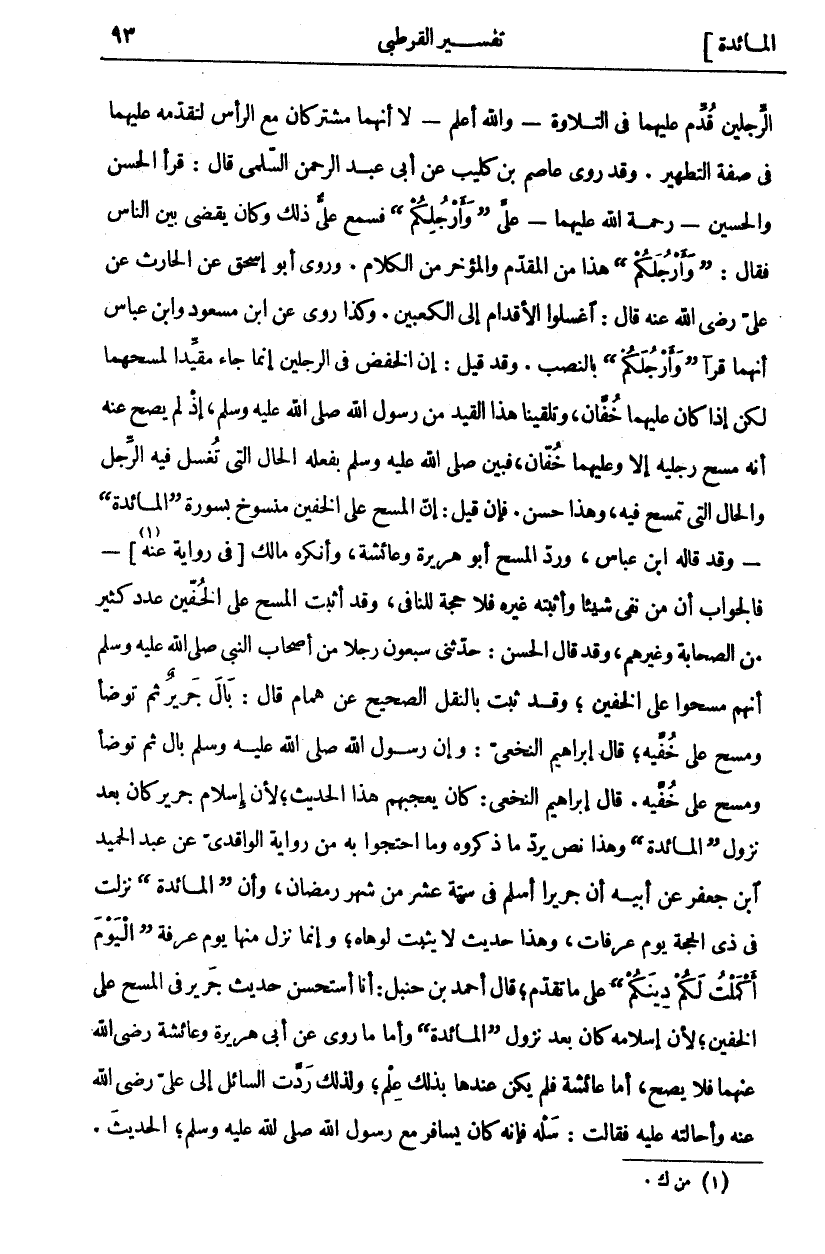 المائدة] تفسير القرطبى ٩٣
الرِّجلين قُدِّم عليهما فى التلاوة — والله أعلم — لا أنهما مشتركان مع الرأس لتقدّمه عليهما
فى صفة التطهير . وقد روى عاصم بن كليب عن أبى عبد الرحمن السّلمى قال : قرأ الحسن
والحسين — رحمة الله عليهما — علىَّ «وَأَرْجُلِكُمْ» فسمع علىٌّ ذلك وكان يقضى بين الناس
فقال : «وَأَرْجُلَكُمْ» هذا من المقدّم والمؤخر من الكلام . وروى أبو إسحق عن الحارث عن
علىّ رضى الله عنه قال : آغسلوا الأقدام إلى الكعبين . وكذا روى عن ابن مسعود وابن عباس
أنهما قرآ «وَأَرْجُلَكُمْ» بالنصب . وقد قيل : إن الخفض فى الرجلين إنما جاء مقيَّدا لمسحهما
لكن إذا كان عليهما خُفَّان، وتلقينا هذا القيد من رسول الله صلى الله عليه وسلم، إذْ لم يصح عنه
أنه مسح رجليه إلا وعليهما خُفّان، فبين صلى الله عليه وسلم بفعله الحال التى تُغسل فيه الرِّجل
والحال التى تمسح فيه، وهذا حسن . فإن قيل : إنّ المسح على الخفين منسوخ بسورة «المائدة»
— وقد قاله ابن عباس ، وردّ المسح أبو هريرة وعائشة، وأنكره مالك [فى رواية عنه(١)] —
فالجواب أن من نفى شيئا وأثبته غيره فلا حجة للنافى، وقد أثبت المسح على الخُفّين عدد كثير
من الصحابة وغيرهم، وقد قال الحسن : حدّثنى سبعون رجلا من أصحاب النبى صلى الله عليه وسلم
أنهم مسحوا على الخفين ؛ وقد ثبت بالنقل الصحيح عن همام قال : بَالَ جَريرٌ ثم توضأ
ومسح على خُفَّيه؛ قال إبراهيم النخعىّ : وإن رسول الله صلى الله عليه وسلم بال ثم توضأ
ومسح على خُفَّيه . قال إبراهيم النخعى : كان يعجبهم هذا الحديث؛ لأن إسلام جرير كان بعد
نزول «المائدة» وهذا نص يردّ ما ذكروه وما احتجوا به من رواية الواقدىّ عن عبد الحميد
آبن جعفر عن أبيه أن جريرا أسلم فى ستة عشر من شهر رمضان، وأن «المائدة» نزلت
فى ذى الحجة يوم عرفات، وهذا حديث لا يثبت لوهاه؛ وإنما نزل منها يوم عرفة «الْيَوْمَ
أَكْمَلْتُ لَكُمْ دِينَكُمْ» على ما تقدّم؛ قال أحمد بن حنبل : أنا أستحسن حديث جَرير فى المسح على
الخفين؛ لأن إسلامه كان بعد نزول «المائدة» وأما ما روى عن أبى هريرة وعائشة رضى الله
عنهما فلا يصح، أما عائشة فلم يكن عندها بذلك عِلْم؛ ولذلك رَدَّت السائل إلى علىّ رضى الله
عنه وأحالته عليه فقالت : سَلْه فإنه كان يسافر مع رسول الله صلى لله عليه وسلم؛ الحديثَ .
(١) من ك .